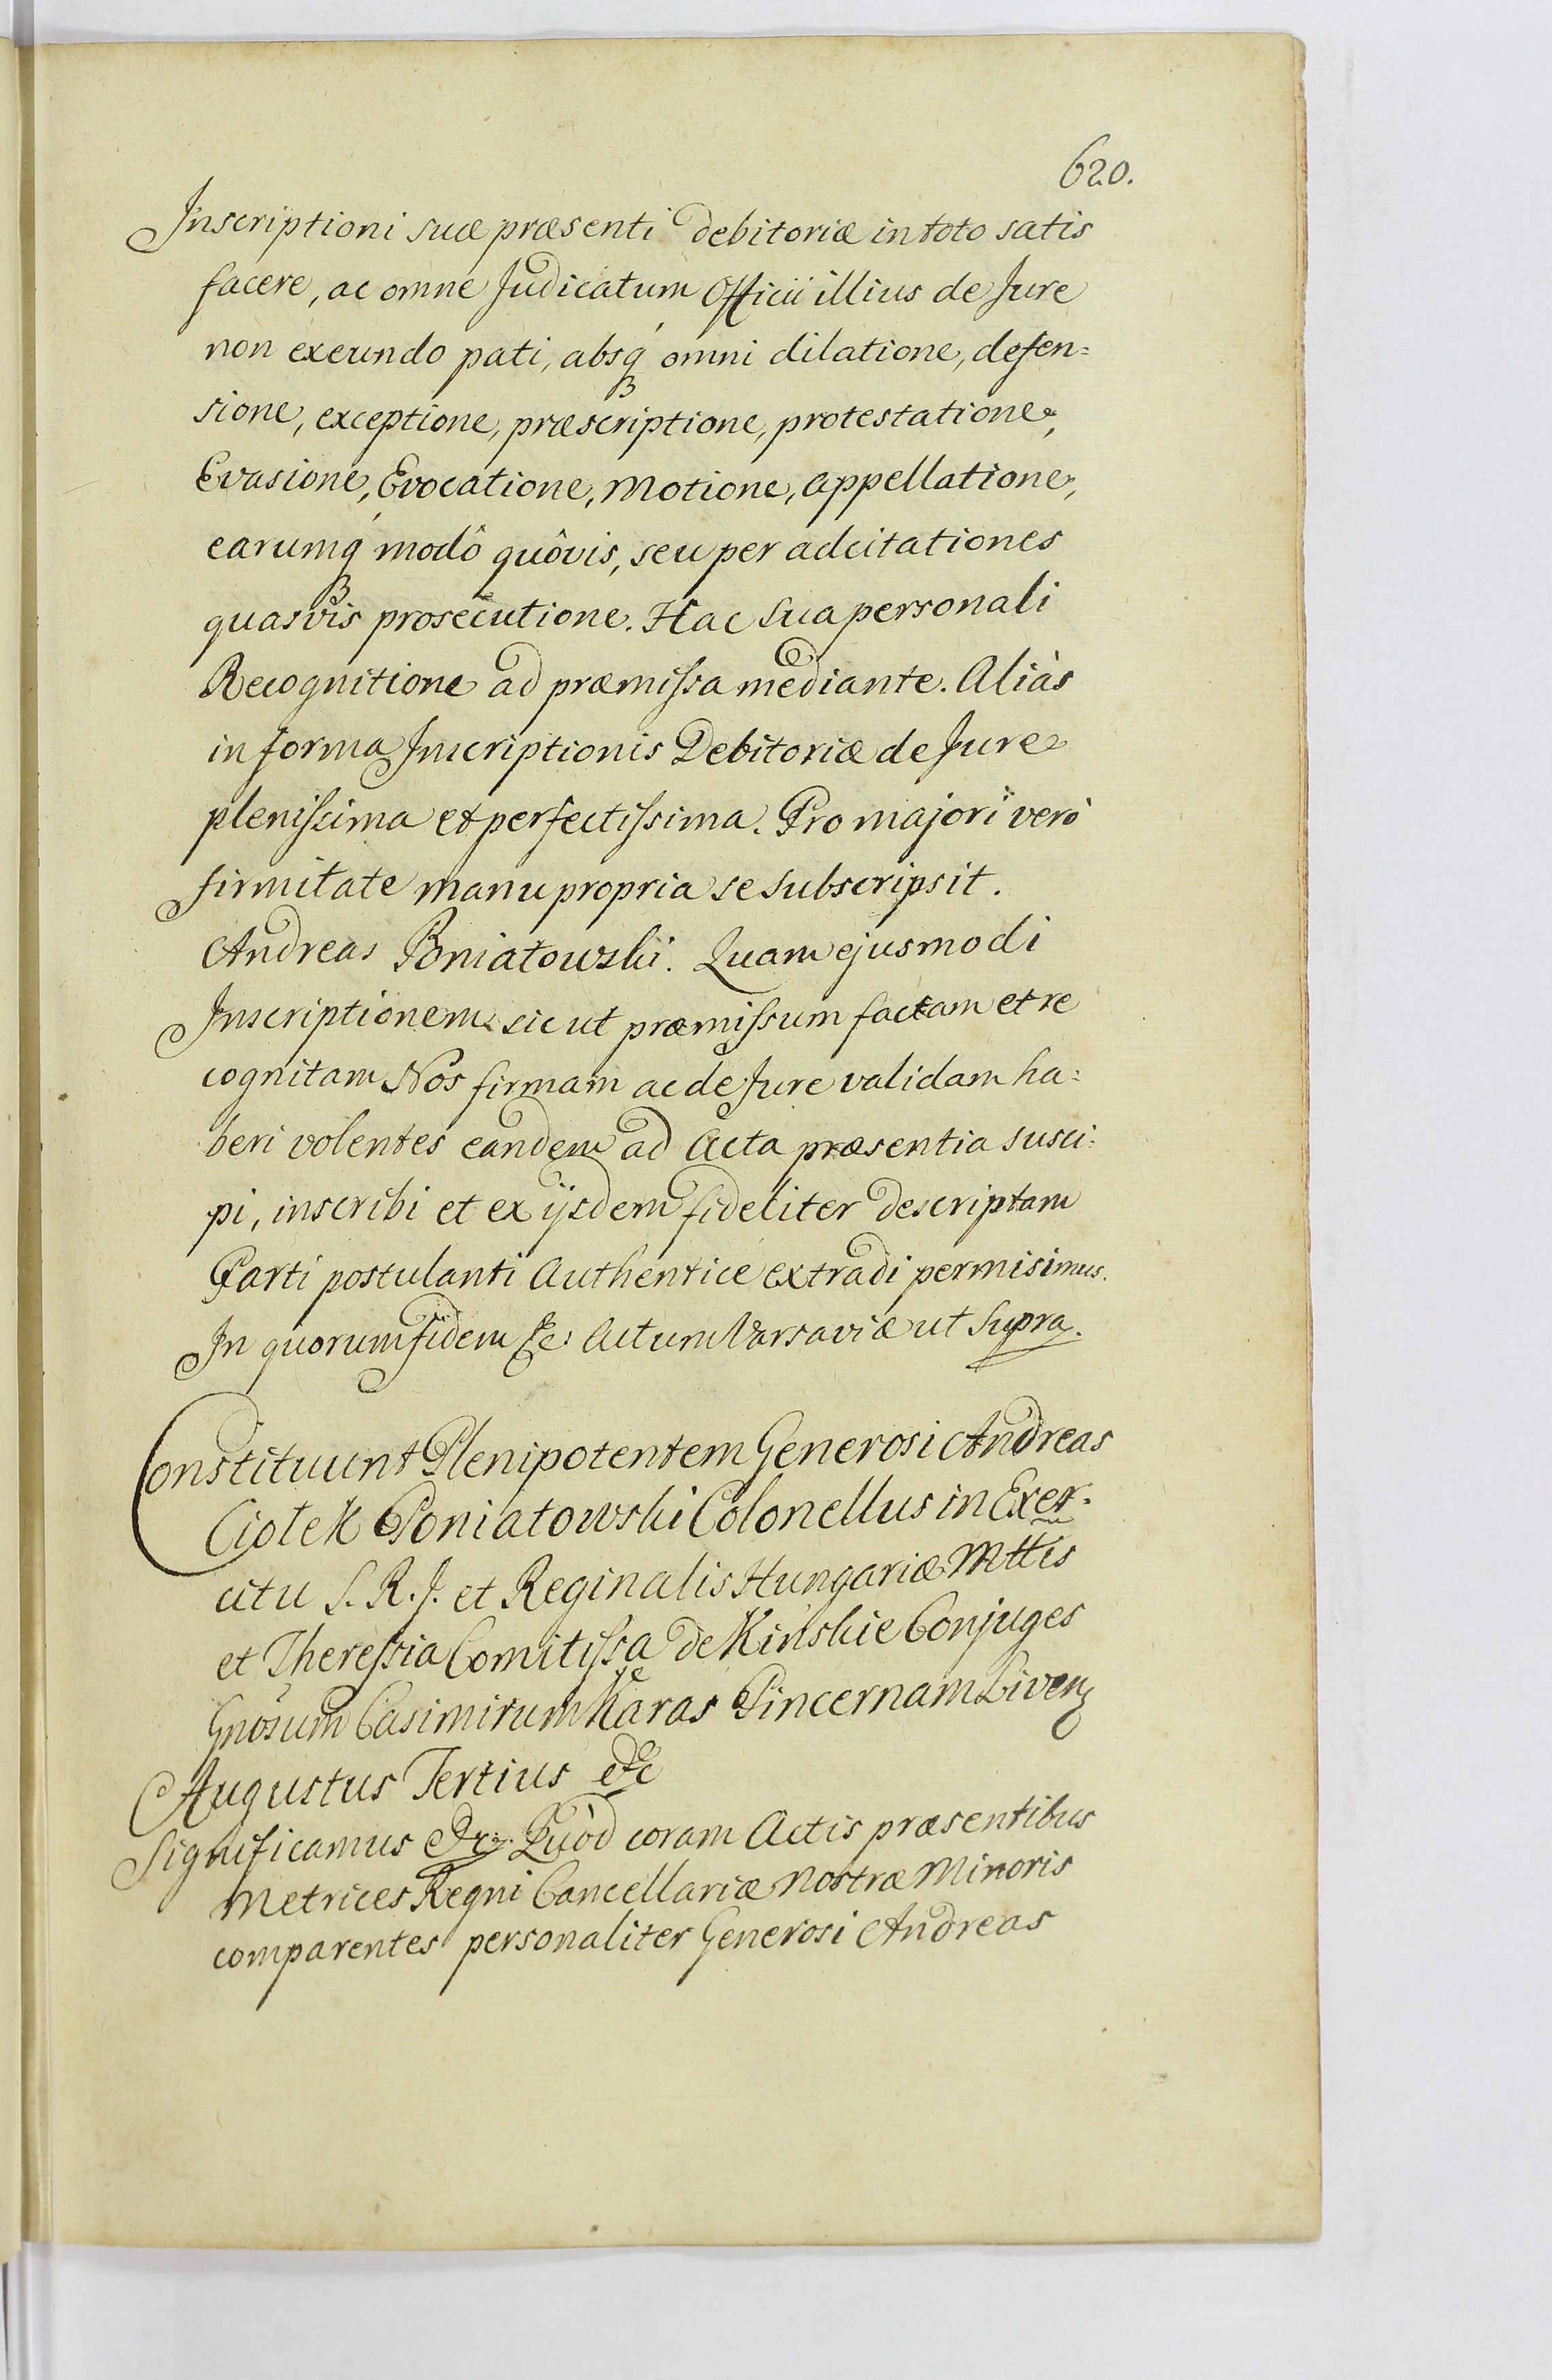 620.
Inscriptioni suæ præsenti debitoriæ in toto satis
facere, ac omne Judicatum Officii illius de Jure
non exeundo pati, absq́ꝫ omni dilatione, defen=
sione, exceptione, præscriptione, protestatione,
Evasione, Evocatione, Motione, Appellatione,
earumq́ꝫ modô quôvis, seu per adcitationes
quasvis prosecutione. Hac sua personali
Recognitione ad præmissa mediante. Aliàs
in forma Inscriptionis Debitoriæ de Jure
plenissima et perfectissima. Pro majori verò
firmitate manu propria se subscripsit.
Andreas Poniatowski. Quam ejusmodi
Inscriptionem sic ut præmissum factam et re
cognitam Nos firmam ac de Jure validam ha=
beri volentes eandem ad Acta præsentia susci=
pi, inscribi et ex ijsdem fideliter descriptam
Parti postulanti Authentice extradi permisimus.
In quorum fidem &c: Actum Varsaviæ ut Supra.
Constituunt Plenipotentem Generosi Andreas
Ciołek Poniatowski Colonellus in Exer=
citu S. R. J. et Reginalis Hungariæ Mttis
et Theressia Comitissa de Kinskie Conjuges
Gnosum Casimirum Karas Pincernam Livenꝫ
Augustus Tertius &c
Significamus &c. Quòd coram Actis præsentibus
Metrices Regni Cancellariæ Nostræ Minoris
comparentes personaliter Generosi Andreas